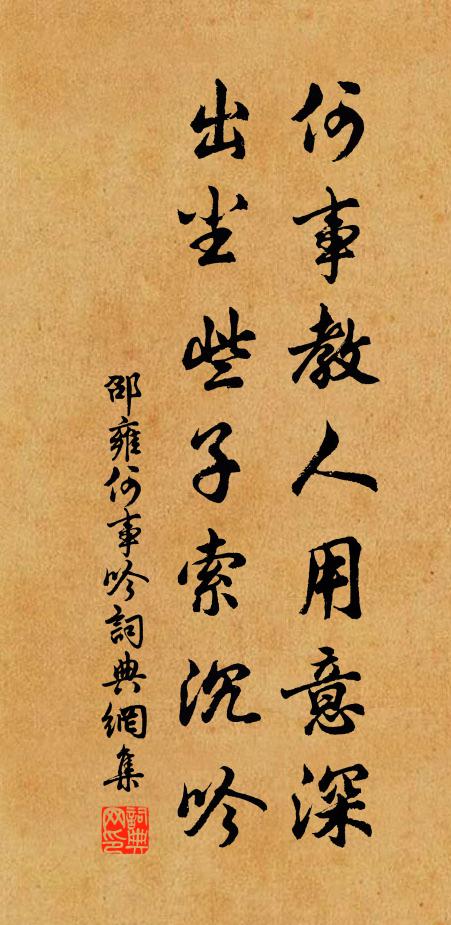 何事教人用意深
出尘些子索沉吟
邵雍何事吟詞典網集
詞典网印